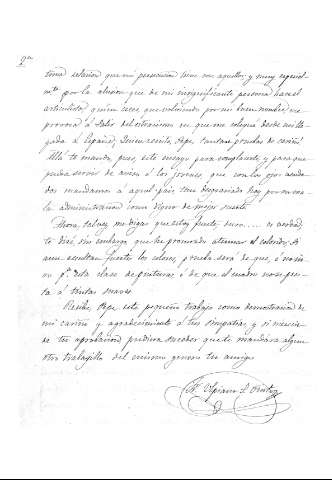 2ª
toma relacion que mi presuncion tiene con aquellos y muy especial-
mte por la alusion que de mi insignificante persona hace el
articulista quien cree, que volviendo por mi buen nombre, me
pongo á salir del ostracismo en que me coloqué desde mi lle-
gada á España, Tienen recibe, Pepe, tantas pruebas de cariño!
Allá te mando, pues, este ensayo para complacerte y para que
pueda servir de aviso á los jóvenes, que con los ojos venda-
dos mandamos á aquel pais tan desgraciado hoy por nues-
la administracion como digno de mejor suerte.
Ahora, tal vez me digas que estoy fuerte duro.... es verdad,
te diré sin embargo que he procurado atenuar el colorido. Si
aun resultan fuertes los colores, prueba será de que, ó no sir-
vo pª esta clase de pinturas ó de que el cuadro no se pres-
ta á tintas suaves.
Recibe, Pepe, este pequeño trabajo como demostracion de
mi cariño y agradecimiento á tus simpatias y si merece
de tu aprobacion pudiera suceder que te mandara algun
otro trabajillo del mismo genero tu amigo